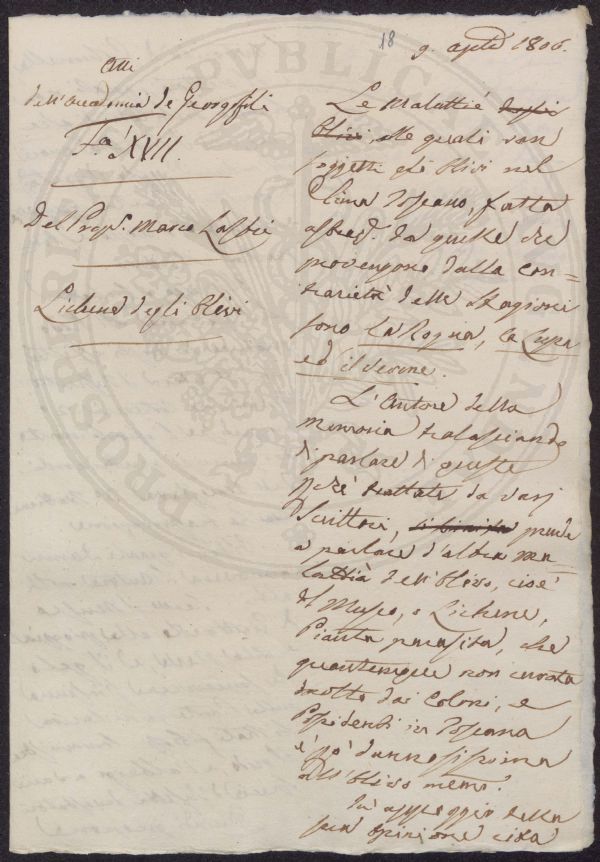 18
9. aprile 1806.
Atti
dell'Accademia de Georgofili
F.a XVII.
Del Prop.o Marco Lastri
Lichene degli Olivi
Le Malattie degli
Olivi, alle quali van
soggetti gli Olivi nel
Clima Toscano, fatta
astraz.e da quelle che
provengono dalla con=
trarietà delle Stagioni
sono la Rogna, la Lupa
ed il Verme.
L'Autore della
memoria tralasciando
di parlare di queste
perchè trattate da varj
Scrittori, prende
a parlare d'altra ma=
lattia dell'Olivo, cioè
del Musco, o Lichene,
Pianta parasita, che
quantunque non curata
molto dai Coloni, e
Possidenti in Toscana
è però dannosissima
all'Olivo med.o
In appoggio della
sua opinione cita
PROSPERITATI PVBLICAE